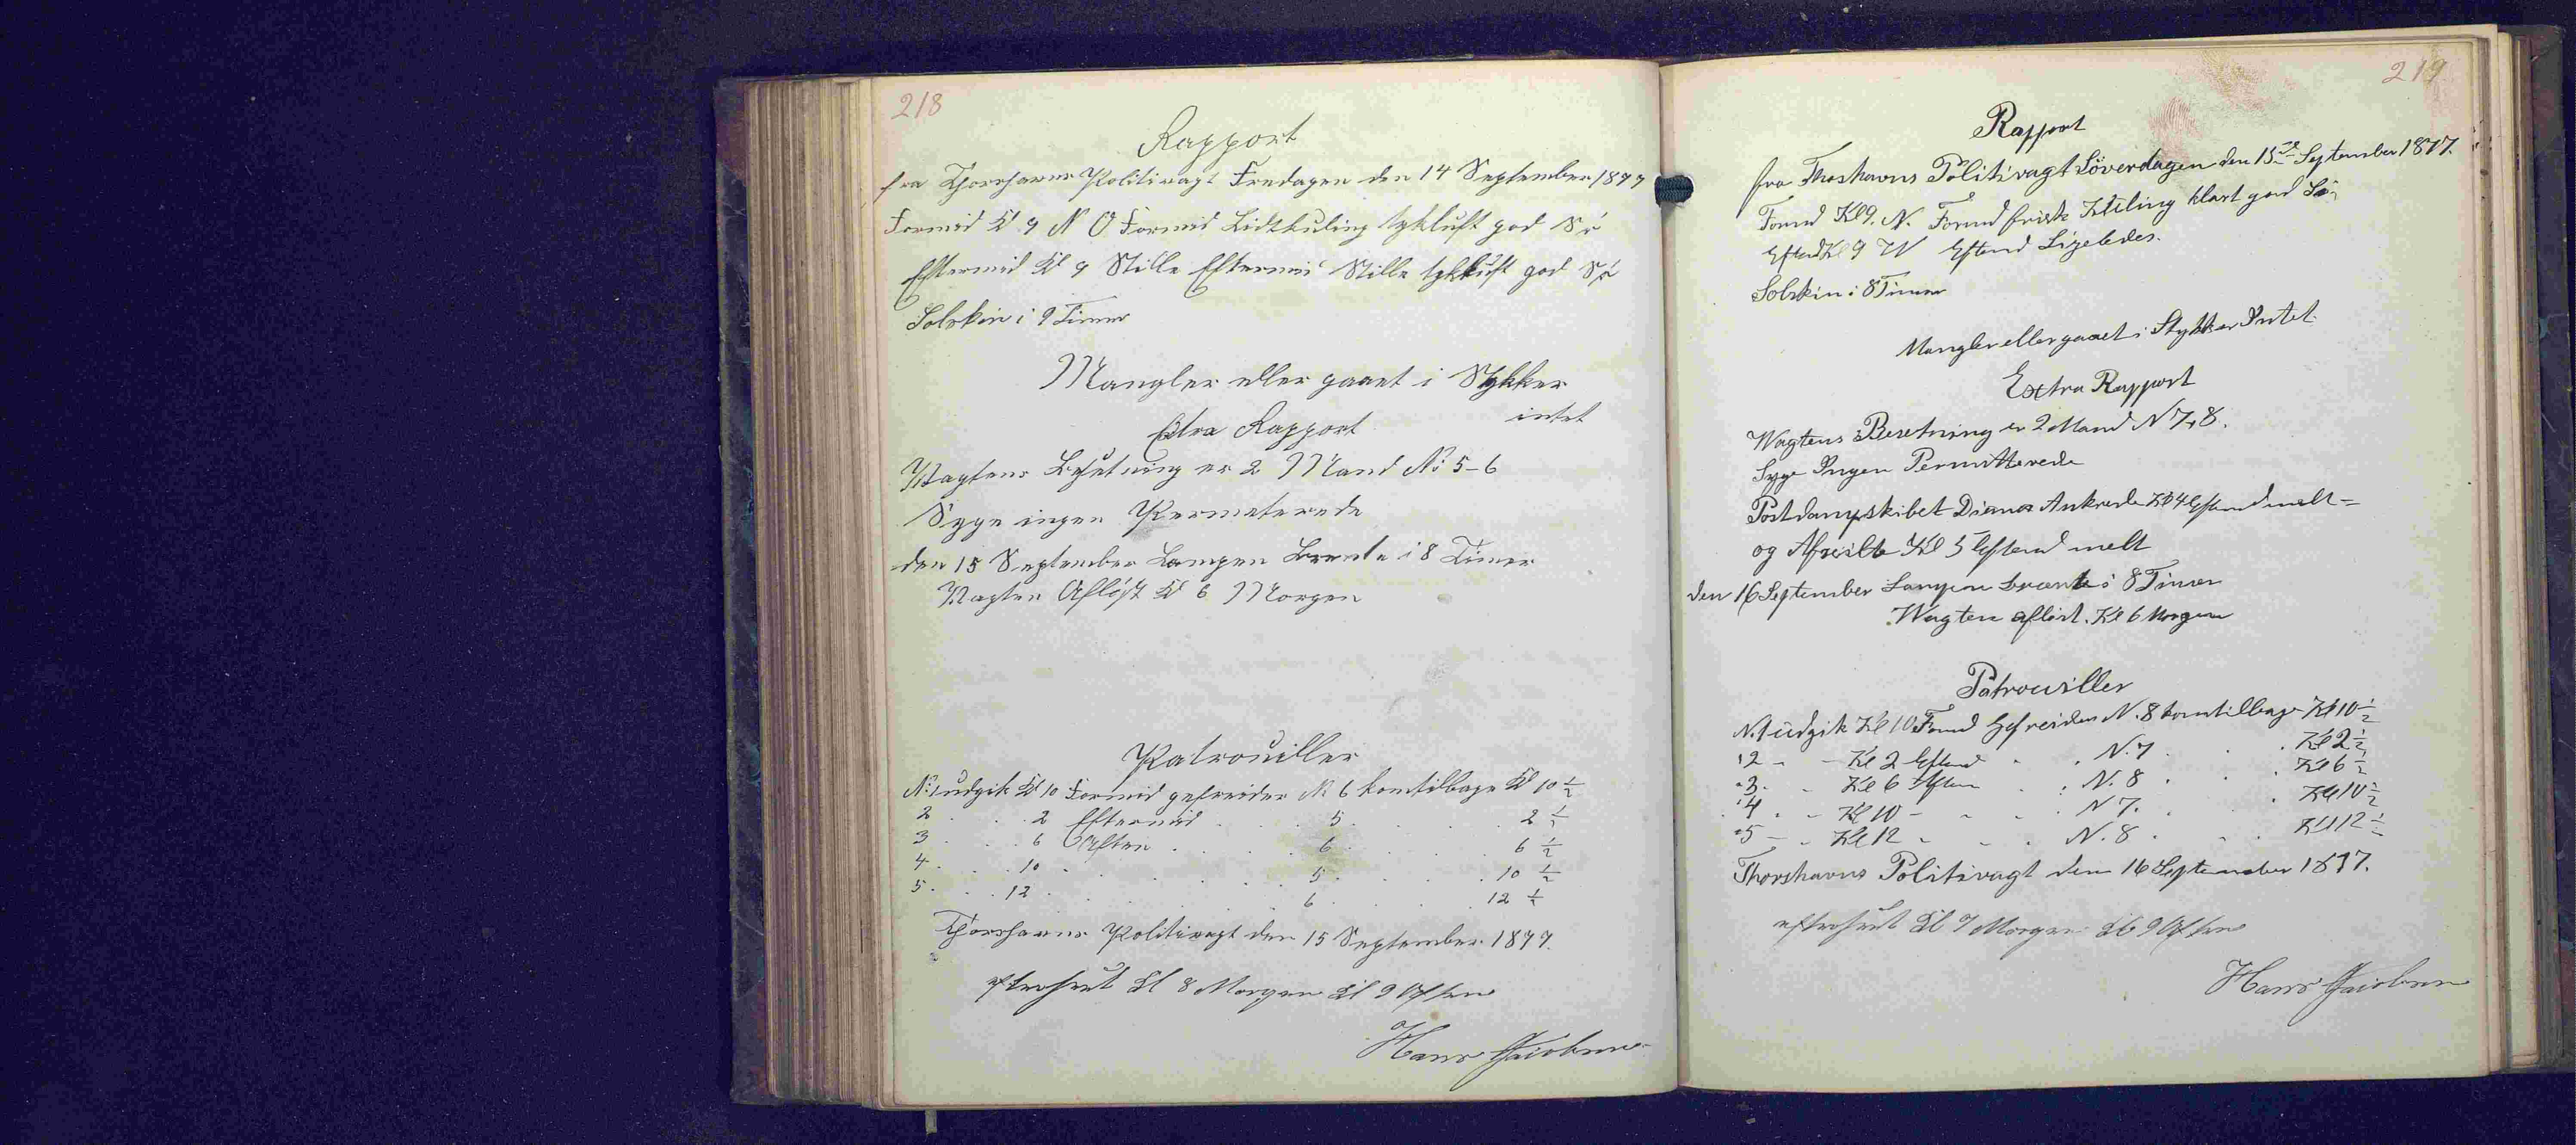 218
Rapport
fra Thorshavns Politivagt Fredagen den 14 September 1877
Formid Kl 9 N O Formid Lidt kuling tykluft god Sö
Eftermid Kl 9 Stille Eftermid Stille tykluft god Sö
Solskin i 9 Timer
Mangler eller gaaet i Stykker
intet
Extra Rapport
Vagtens Besetning er 2 Mand No 5-6
Syge ingen Permeterede
den 15 September Lampen Brente i 8 Timer
Vagten Aflöst Kl 6 Morgen
Patrouiller
No 1 udgik Kl 10 Formid gefreider N 6 kom tilbage Kl 10 1/2
2 . . 2 Eftermid . . 5 . . . 2 1/2
3 . . 6 Aften . . . 6 . . . 6 1/2
4 . . 10 . . . . 5 . . . 10 1/2
5 . . 12 . . . . 6 . . . 12 1/2
Thorshavns Politivagt den 15 September 1877.
efterseet Kl 8 Morgen Kl 9 Aften
Hans Jacobsen
219
Rapport
fra Thorshavns Politivagt Löverdagen den 15de September 1877.
Formd Kl 9. N. Formd frisk Kuling klart god Sö,
Eftmd Kl 9 W Eftmd Ligeledes.
Solskin i 8 Timer
Mangler eller gaaet i Stykker Intet.
Extra Rapport
Wagtens Besetning er 2 Mand N 7, 8.
Syge Ingen Permitterede
Postdampskibet Diana Ankrede Kl 4 Eftmd melt =
og Afreiste Kl 5 Eftmd melt
den 16 September Lampen brænte i 8 Timer
Wagten aflöst. Kl 6 Morgen
Patrouiller
N. 1 udgik Kl 10 Formd Gefreider N. 8 kom tilbage Kl 10 1/2
" 2 - - Kl 2 Eftmd . . N. 7 . . . Kl 2 1/2
" 3. - Kl 6 Aften . . N. 8 . . . Kl 6 1/2
" 4 - - Kl 10 - - . N 7. . . . Kl 10 1/2
" 5 - - Kl 12 - - . N. 8 . . . Kl 12 1/2
Thorshavns Politivagt den 16 September 1877.
efterseet Kl 7 Morgen Kl 9 Aften
Hans Jacobsen